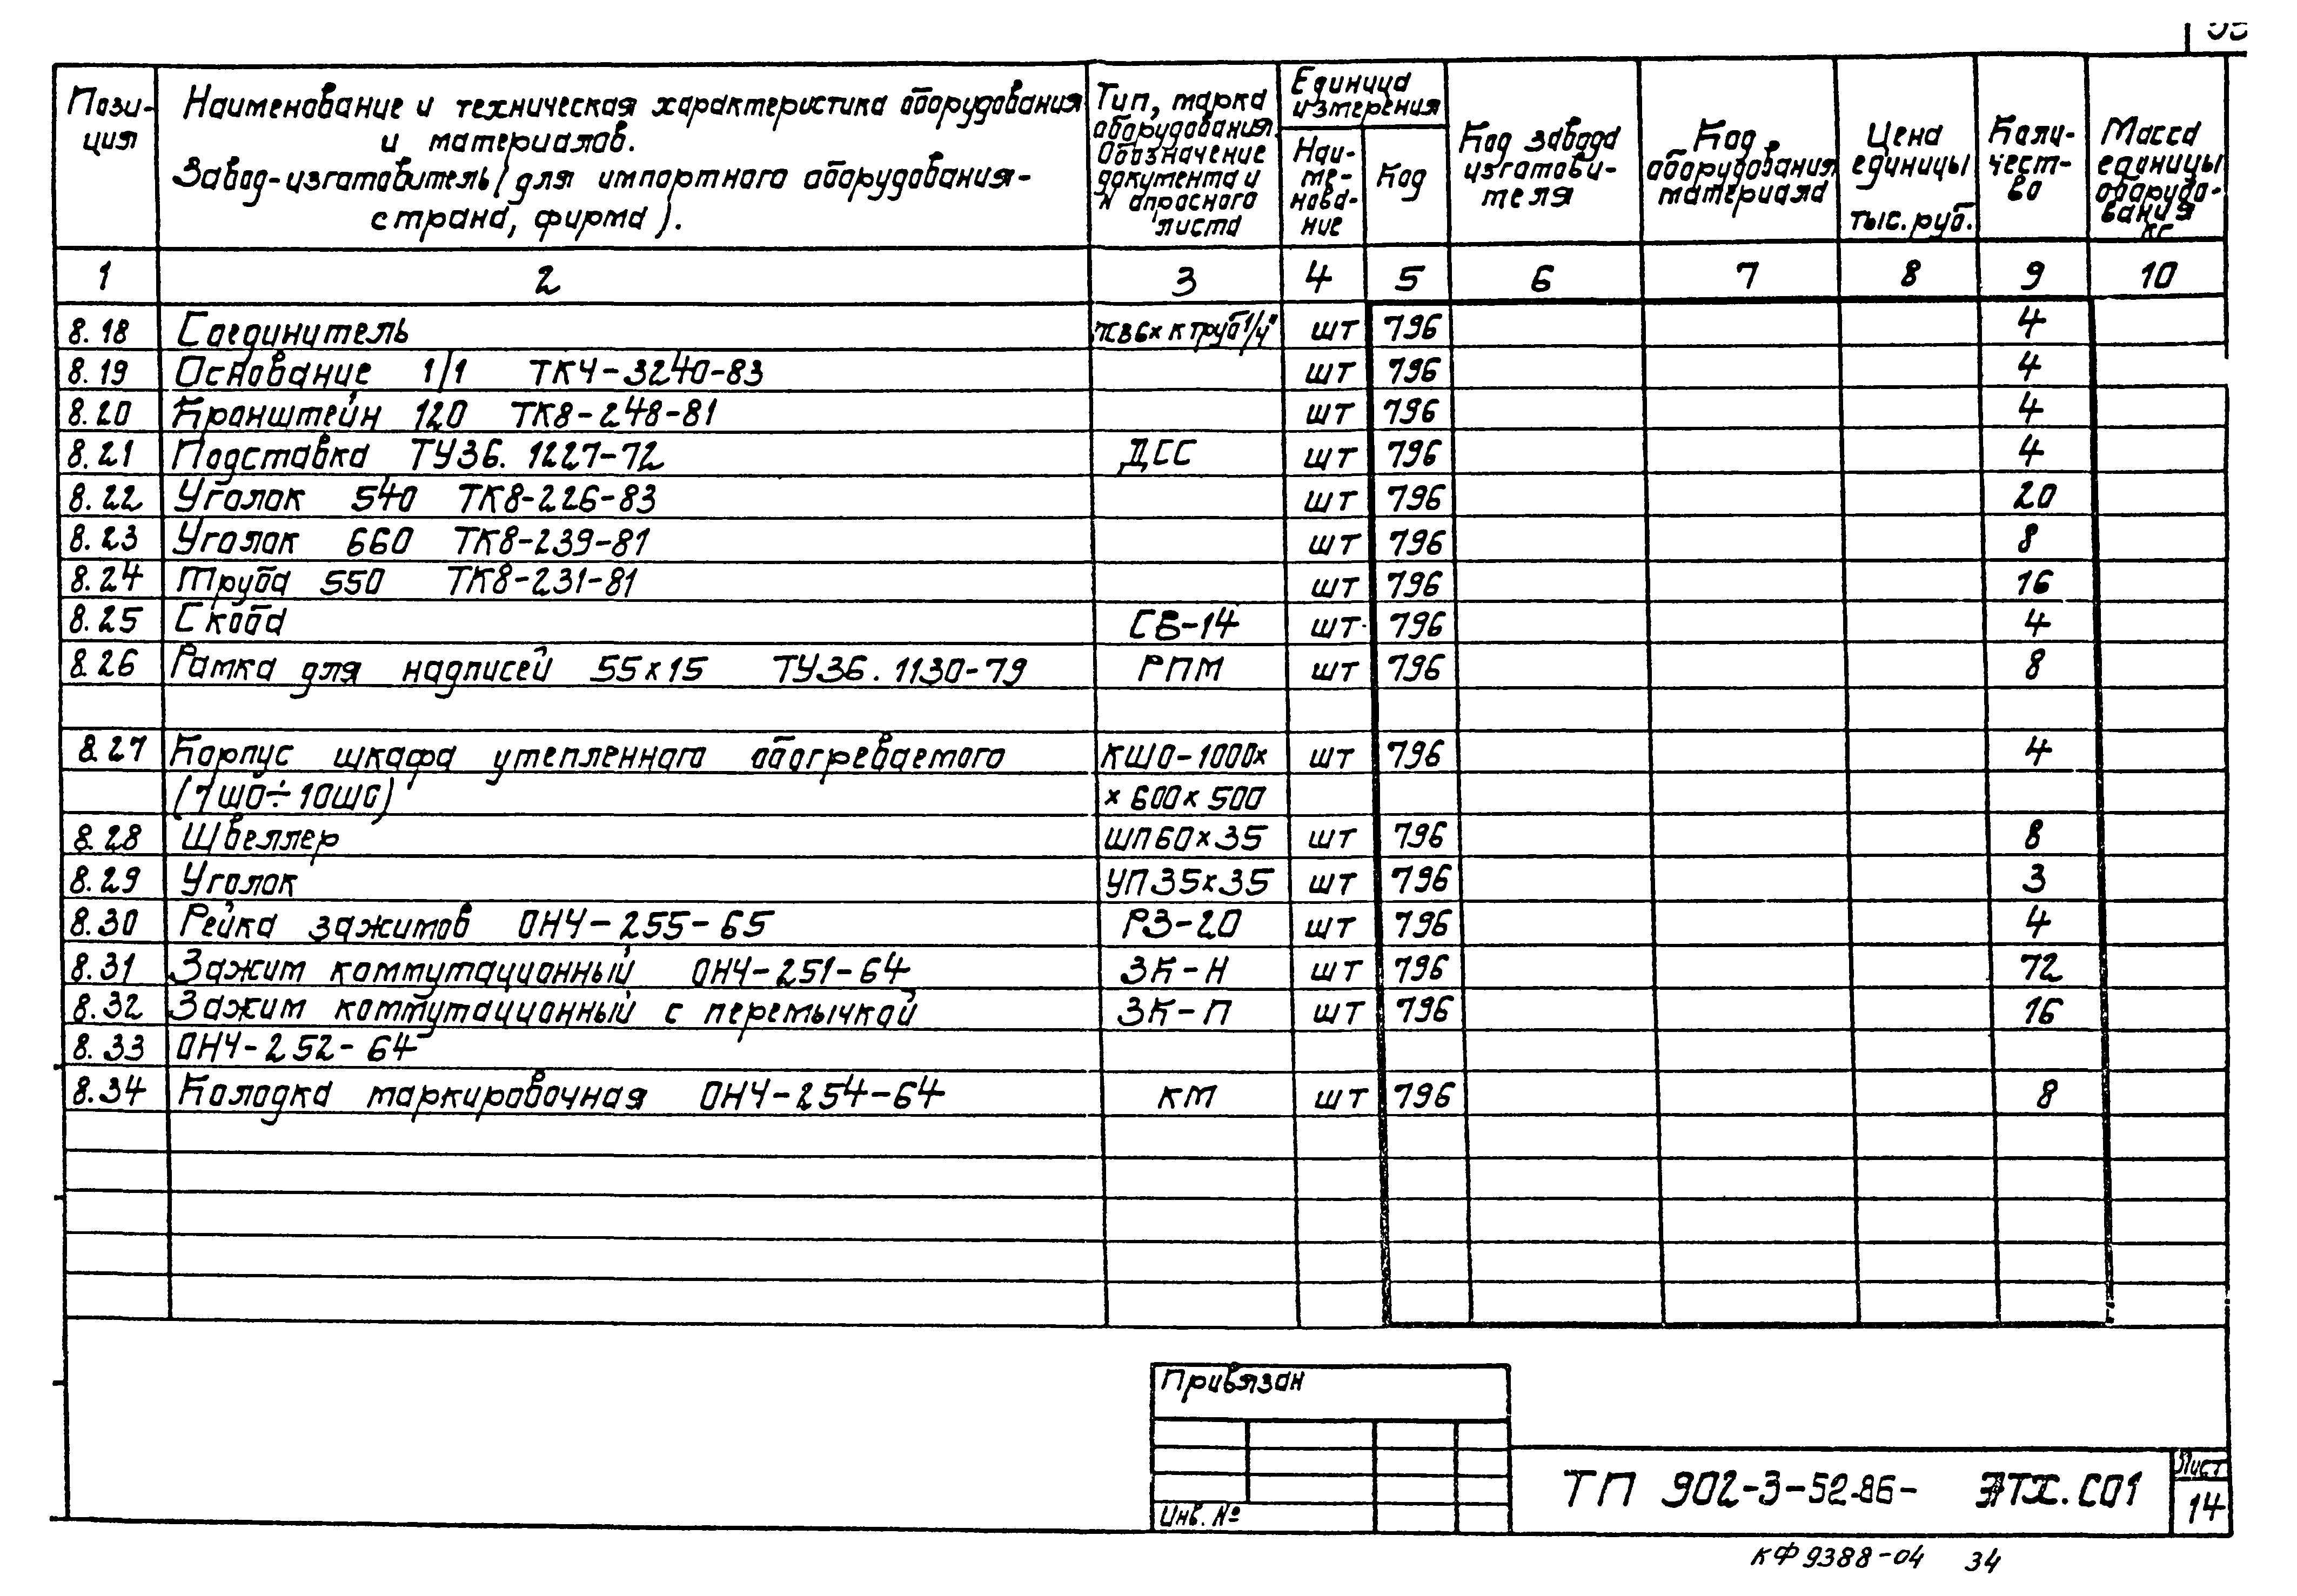 Пози-
ция
Наименование и техническая характеристика оборудования
и материалов.
Завод-изготовитель (для импортного оборудования-
страна, фирма).
Тип, марка
оборудования.
Обозначение
документа и
N опросного
листа
Единица
измерения
Наи-
ме-
нова-
ние
Код
Код завода
изготови-
теля
Код
оборудования
материала
Цена
единицы
тыс. руб.
Коли-
чест-
во
Масса
единицы
оборудо-
вания
кг
1 2 3 4 5 6 7 8 9 10
8.18 Соединитель к труб 1/4" шт 796 4
8.19 Основание 1/1 ТК4-3240-83 шт 796 4
8.20 Кронштейн 120 ТК8-248-81 шт 796 4
8.21 Подставка ТУ36. 1227-72 ДСС шт 796 4
8.22 Уголок 540 ТК8-226-83 шт 796 20
8.23 Уголок 660 ТК8-239-81 шт 796 8
8.24 Труба 550 ТК8-231-81 шт 796 16
8.25 Скоба СВ-14 шт 796 4
8.26 Рамка для надписей 55х15 ТУ36. 1130-79 РПМ шт 796 8
8.27 Корпус шкафа утепленного обогреваемого КШО-1000х шт 796 4
(7ШО÷10ШО) х 600 х 500
8.28 Швеллер ШП60х35 шт 796 8
8.29 Уголок УП35х35 шт 796 3
8.30 Рейка зажимов ОН4-255-65 РЗ-20 шт 796 4
8.31 Зажим коммутационный ОН4-251-64 ЗК-Н шт 796 72
8.32 Зажим коммутационный с перемычкой ЗК-П шт 796 16
8.33 ОН4-252-64
8.34 Колодка маркировочная ОН4-254-64 КМ шт 796 8
Привязан
Инв. №
ТП 902-3-52.86- АТХ. СО1
Лист
14
КФ 9388-04 34